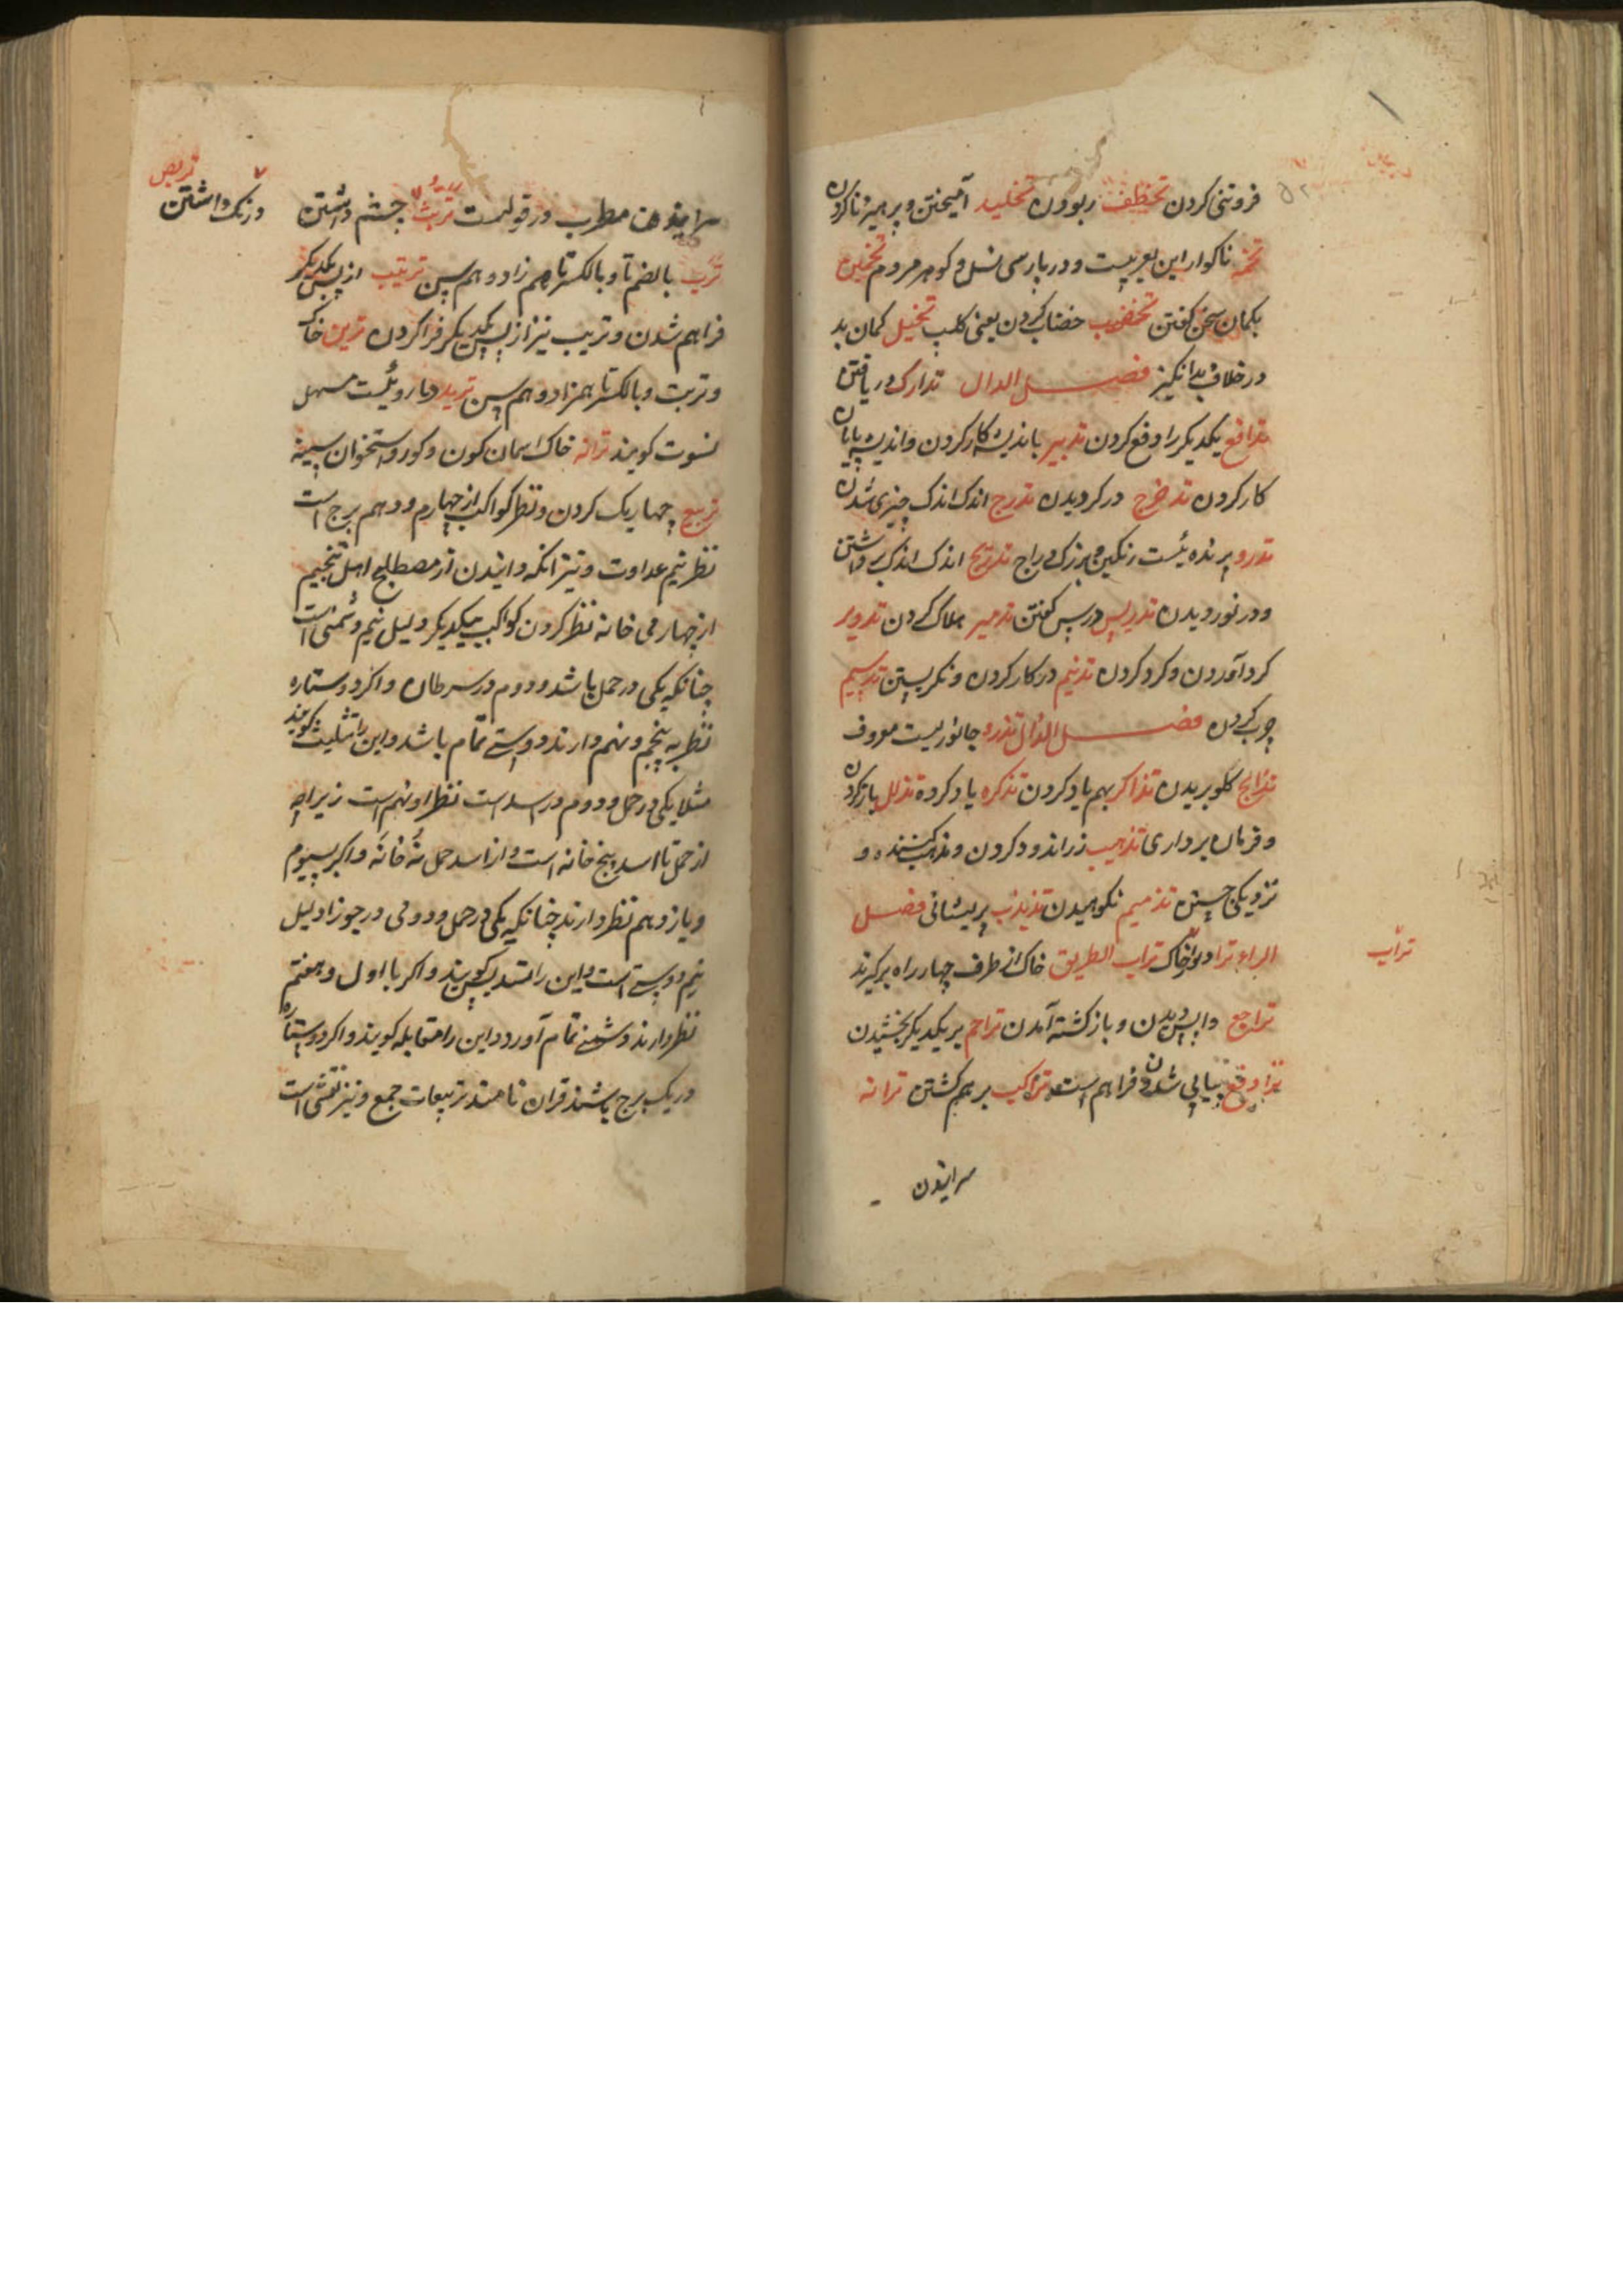 فروتنی کردن تخطف ربودن تخلید آمیختن و پرهیز ناکردن
تخمه ناکوار این بعربیست و در پارسی نسل و کوهر مردم تخمین
بکمان سخن کفتن تخضیب خضاب کردن یعنی کلب تخیل کمان بد
در خلاف بدانکیز فصل الدال تدارک دریافتن
تدافع یکدیکر را دفع کردن تدبیر باندیشه کار کردن و اندیشه پایان
کار کردن تدحرج در کردیدن تدرج اندک اندک چیزی شدن
تدرو پرنده ئیست رنکین و بزرک دراج تدریج اندک اندک برداشتن
و در نوردیدن تدریس درس کفتن تدمیر هلاک کردن تدویر
کرد آوردن و کرد کردن تدنیم در کار کردن و نکریستن تدسیم
چرب کردن فصل الذال تذرو جانوریست معروف
تذابح کلو بریدن تذاکر بهم یاد کردن تذکره یاد کرده تذلل
و فرمان برداری تذهیب زراندود کردن و
نزدیکی جستن تذمیم نکوهیدن تذبذب پریشانی فصل
الراء ترا دیوار خاک تراب الطریق خاک از طرف چهار راه برکیرند
تراب
تراجع واپس دیدن و باز کشته آمدن تراحم بر یکدیکر بخشیدن
پیاپی شدن و فراهم است تراکب بر هم کشتن ترانه
سرائیدن
سرائیدن مطرب ورقه چشم داشتن
تربص
درنک داشتن
ترب بالضم تا و بالکسر تا هم زاد و هم سن ترتیب از پس یکدیکر
فراهم شدن و ترتیب نیز از پس یکدیکر فرا کردن ترین خاک
و تربت و بالکسر تا همزاد و هم سن تربد داروئیست مسهل
نسوت کویند ترانه خاک اسمان کون و کور و استخوان سینه
تربیع چهار یک کردن و نظر کواکب از چهارم و دهم برج است
نظر نیم عداوت و نیز انکه دانیدن از مصطلح اهل تنجیم
از چهارمی خانه نظر کردن کواکب بیکدیکر دلیل نیم دشمنی است
چنانکه یکی در حمل باشد و دوم در سرطان و اکر دو ستاره
نظر به پنجم و نهم دارند دوستی تمام باشد و این را تثلیث کویند
مثلا یکی در حمل و دوم در اسد است نظر او نهم است زیراچه
از حمل تا اسد پنج خانه است و از اسد حمل نه خانه و اکر بسیوم
و یازدهم نظر دارند چنانکه یکی در حمل و دومی در جوزا دلیل
نیم دوستی است و این را تسدیس کویند و اکر با اول و هفتم
نظر دارند دشمنی تمام آورد و این را مقابله کویند و اکر دو ستاره
در یک برج باشند قران نامند تربیعات جمع و نیز نقشی است